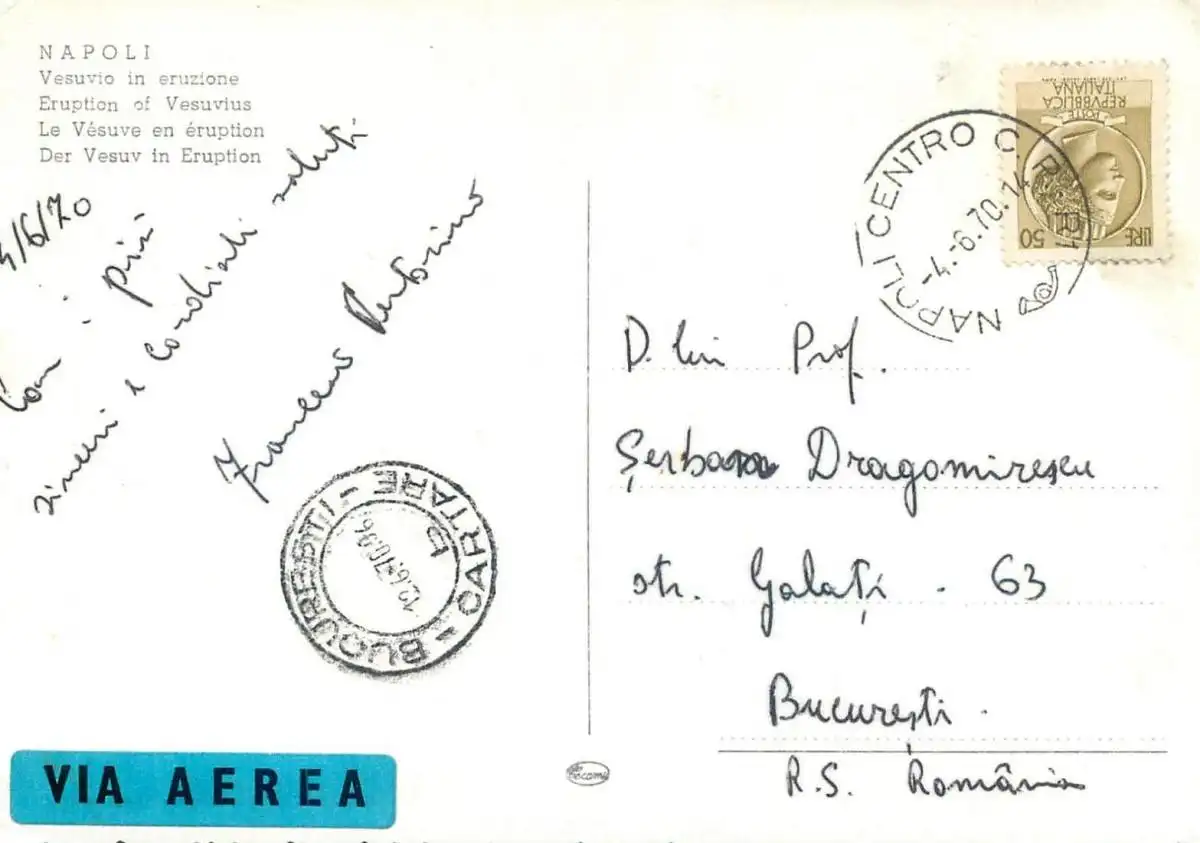 NAPOLI
Vesuvio in eruzione
Eruption of Vesuvius
Le Vésuve en éruption
Der Vesuv in Eruption
4/6/70
Con i più
sinceri e cordiali saluti
Francesco
POSTE
REPVBBLICA
ITALIANA
LIRE 50
NAPOLI CENTRO C.P.
-4.-6.70.14
D. lui Prof.
Șerban Dragomirescu
str. Galați . 63
București .
R.S. România
BUCUREȘTI - CARTARE -
VIA AEREA